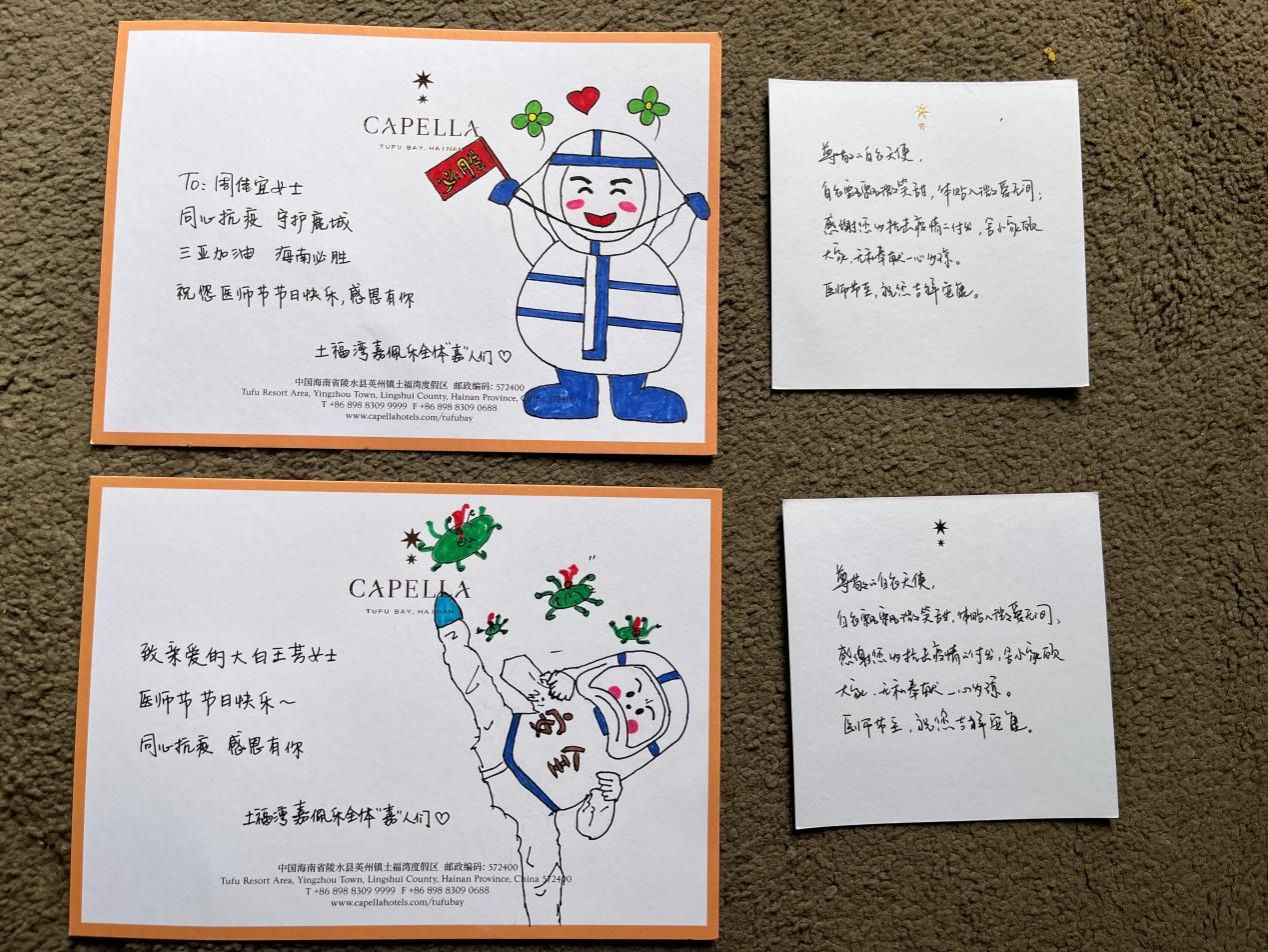 CAPELLA
TUFU BAY, HAINAN
必胜
To: 周佳宜女士
同心抗疫 守护鹿城
三亚加油 海南必胜
祝您医师节节日快乐,感恩有你
土福湾嘉佩乐全体"嘉"人们♡
中国海南省陵水县英州镇土福湾度假区 邮政编码: 572400
Tufu Resort Area, Yingzhou Town, Lingshui County, Hainan Province, China 572400
T +86 898 8309 9999 F +86 898 8309 0688
www.capellahotels.com/tufubay
尊敬的白衣天使,
白衣飘飘微笑甜,体贴入微暮无间;
感谢您为抗击疫情的付出,舍小家顾
大家,无私奉献一心为琼。
医师节至,祝您吉祥宝隹。
CAPELLA
TUFU BAY, HAINAN
致亲爱的大白王芳女士
医师节节日快乐~
同心抗疫 感恩有你
安全
土福湾嘉佩乐全体"嘉"人们♡
中国海南省陵水县英州镇土福湾度假区 邮政编码: 572400
Tufu Resort Area, Yingzhou Town, Lingshui County, Hainan Province, China 572400
T +86 898 8309 9999 F +86 898 8309 0688
www.capellahotels.com/tufubay
尊敬的白衣天使,
白衣飘飘微笑甜,体贴入微暮无间;
感谢您为抗击疫情的付出,舍小家顾
大家,无私奉献一心为琼。
医师节至,祝您吉祥